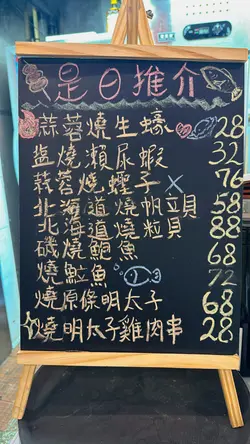 是日推介
蒜蓉燒生蠔 28
塩燒瀨尿蝦 32
蒜蓉燒蟶子 X 76
北海道燒帆立貝 58
北海道燒粒貝 88
磯燒鮑魚 68
燒魟魚 72
燒原條明太子 68
燒明太子雞肉串 28